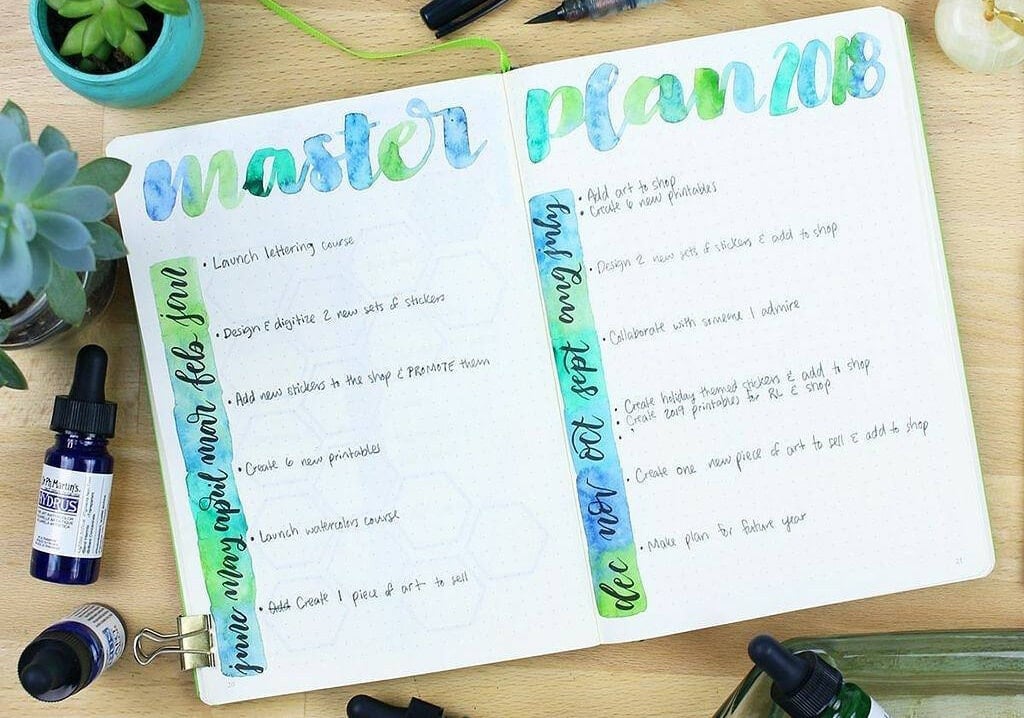 master plan 2018
jan
• Launch lettering course
feb
• Design & digitize 2 new sets of stickers
mar
• Add new stickers to the shop & PROMOTE them
april
• Create 6 new printables
may
• Launch watercolors course
june
• Add Create 1 piece of art to sell
20
july
• Add art to shop
• Create 6 new printables
aug
• Design 2 new sets of stickers & add to shop
sept
• Collaborate with someone I admire
oct
• Create holiday themed stickers & add to shop
• Create 2019 printables for RL & shop
•
nov
• Create one new piece of art to sell & add to shop
dec
• Make plan for future year
21
Dr. Ph. Martin's
HYDRUS